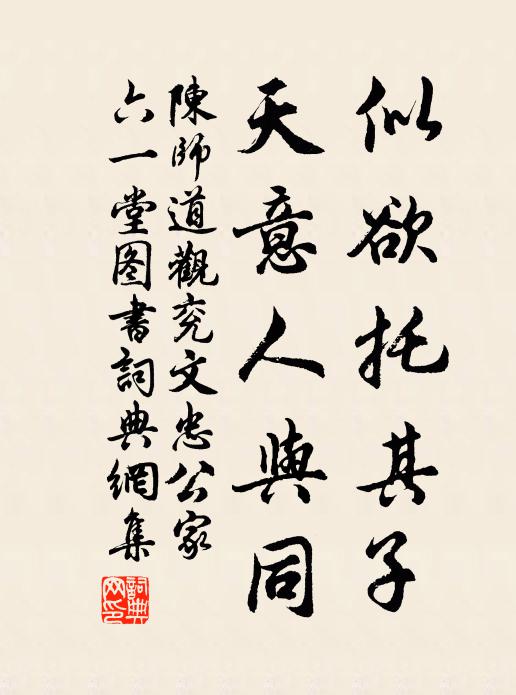 似欲托其子
天意人與同
陳師道觀兖文忠公家
六一堂图書詞典網集
詞典网印